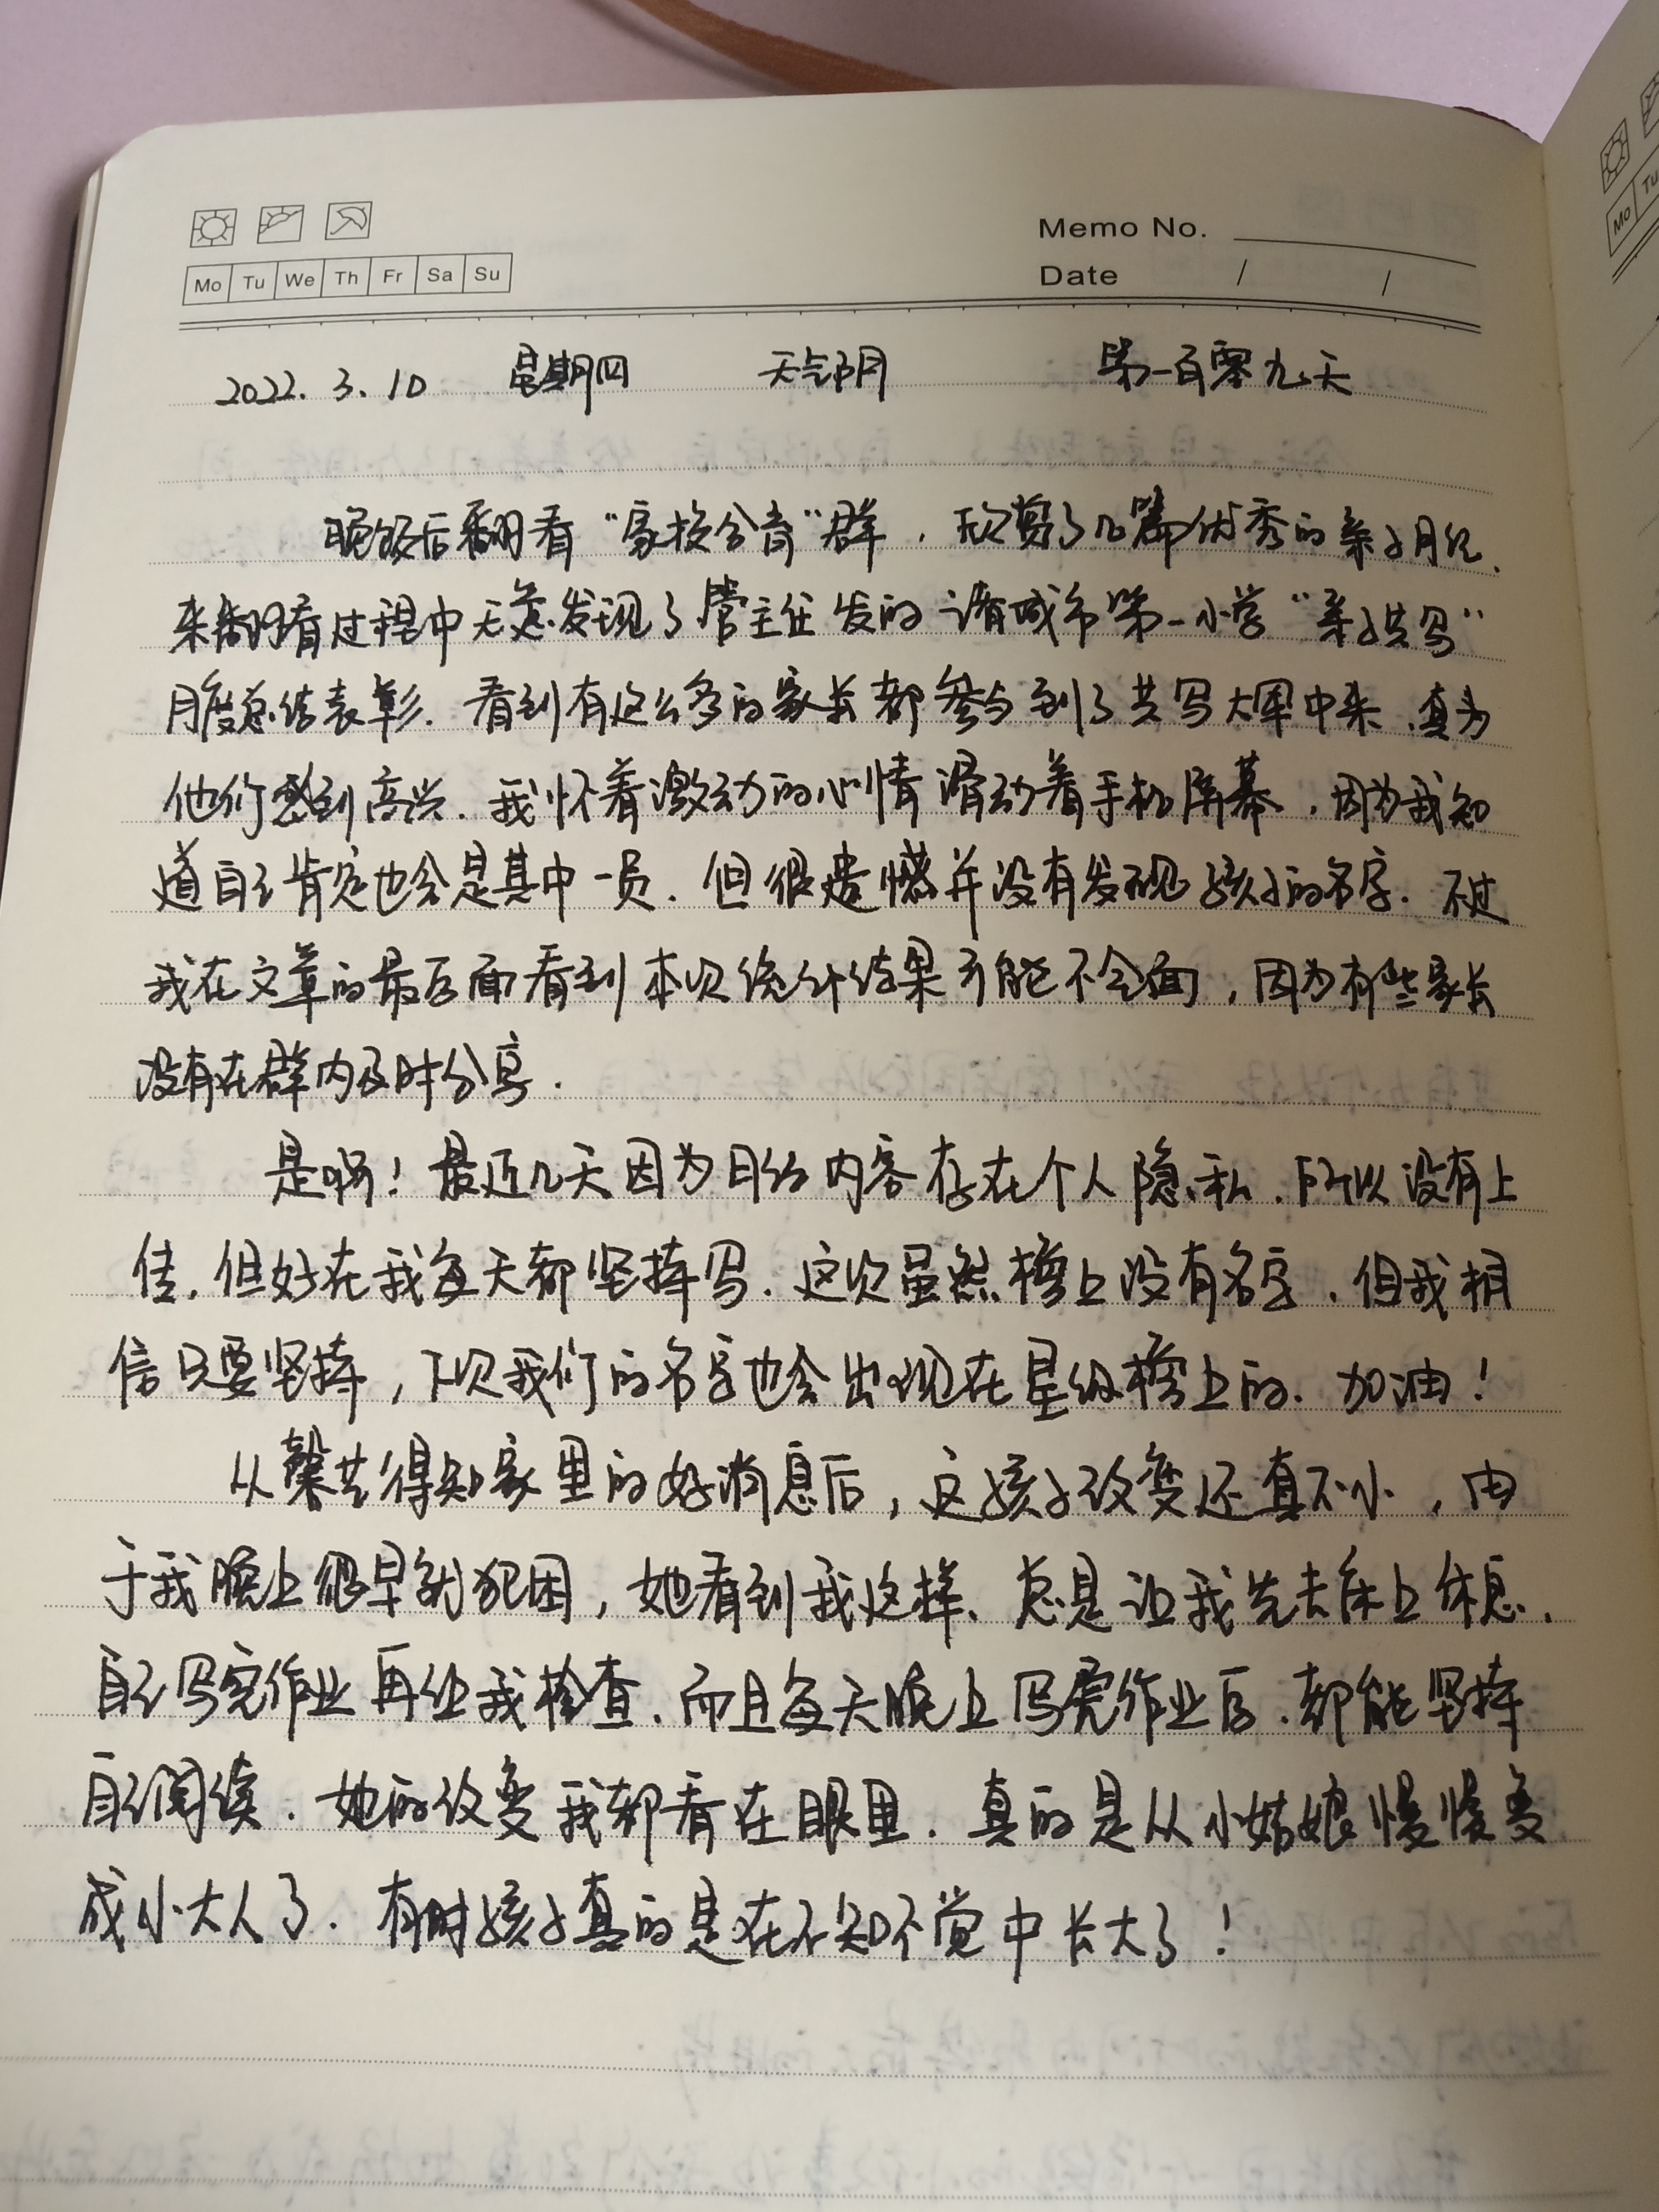 Memo No.
Mo Tu We Th Fr Sa Su
Date / /
2022.3.10 星期四 天气阴 第一百零九天
晚饭后翻看“家校合育”群，欣赏了几篇优秀的亲子日记，
来翻看过程中无意发现了管主任发的诸城市第一小学“亲子共写”
月度总结表彰.看到有这么多的家长都参与到了共写大军中来，真为
他们感到高兴.我怀着激动的心情滑动着手机屏幕，因为我知
道自己肯定也会是其中一员.但很遗憾并没有发现孩子的名字.不过
我在文章的最后面看到本次统计结果可能不全面，因为有些家长
没有在群内及时分享.
是啊！最近几天因为日记内容存在个人隐私，所以没有上
传，但好在我每天都坚持写.这次虽然榜上没有名字，但我相
信只要坚持，下次我们的名字也会出现在星级榜上的.加油！
从馨艺得知家里的好消息后，这孩子改变还真不小，由
于我晚上很早就犯困，她看到我这样、总是让我先去床上休息，
自己写完作业再给我检查.而且每天晚上写完作业后，都能坚持
自己阅读.她的改变我都看在眼里.真的是从小姑娘慢慢变
成小大人了.有时孩子真的是在不知不觉中长大了！